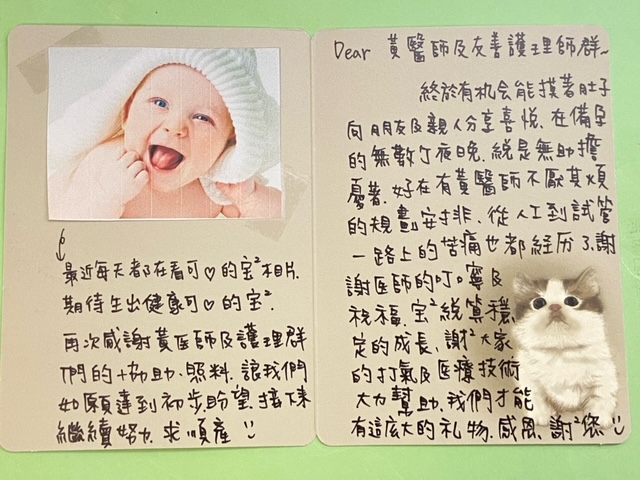 最近每天都在看可♡的宝²相片.
期待生出健康可♡的宝².
再次感謝黃医師及護理群
們的協助.照料.讓我們
如願達到初步盼望.接下來
繼續努力.求順產 ü
Dear 黃醫師及友善護理師群~
終於有机会能摸著肚子
向朋友及親人分享喜悅.在備孕
的無數个夜晚.總是無助擔
憂著.好在有黃醫師不厭其煩
的規劃安排.從人工到試管
一路上的苦痛也都経历了.謝
謝医師的叮嚀及
祝福.宝²総算穩
定的成長.謝²大家
的打氣及医療技術
大力幫助.我們才能
有這庅大的礼物.感恩.謝²您 ü